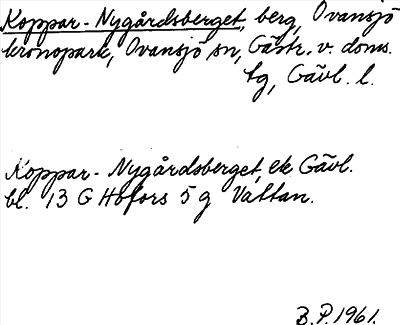 Koppar-Nygårdsberget, berg, Ovansjö
kronopark, Ovansjö sn, Gästr. v. doms.
tg, Gävl. l.
Koppar-Nygårdsberget, ek Gävl.
bl. 13 G Hofors 5 g Vattan.
B.P. 1961.